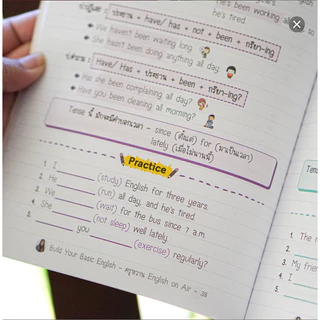 he's been working all so
he's tired.
ปฏิเสธ : ประธาน + have/ has + not + been + กริยา-ing
We haven't been waiting long.
She hasn't been doing anything all day.
คำถาม : Have/ Has + ประธาน + been + กริยา-ing?
Has she been complaining all day?
Have you been cleaning all morning?
Tense นี้ มักจะมีคำบอกเวลา - since (ตั้งแต่) for (มาเป็นเวลา)
lately (เมื่อไม่นานนี้)
Practice
1. I (study) English for three years.
2. He (run) all day, and he's tired.
3. We (wait) for the bus since 7 a.m.
4. She (not sleep) well lately.
5. you (exercise) regularly?
Build Your Basic English - ครูหวาน English on Air - 38
Tens
1. The
2.
3. My frien
4. I
5.